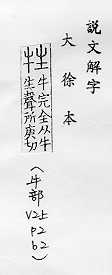 說文解字
大徐本
牷
牛完全从牛
生聲所庚切
(牛部
V2上
P2
b2)